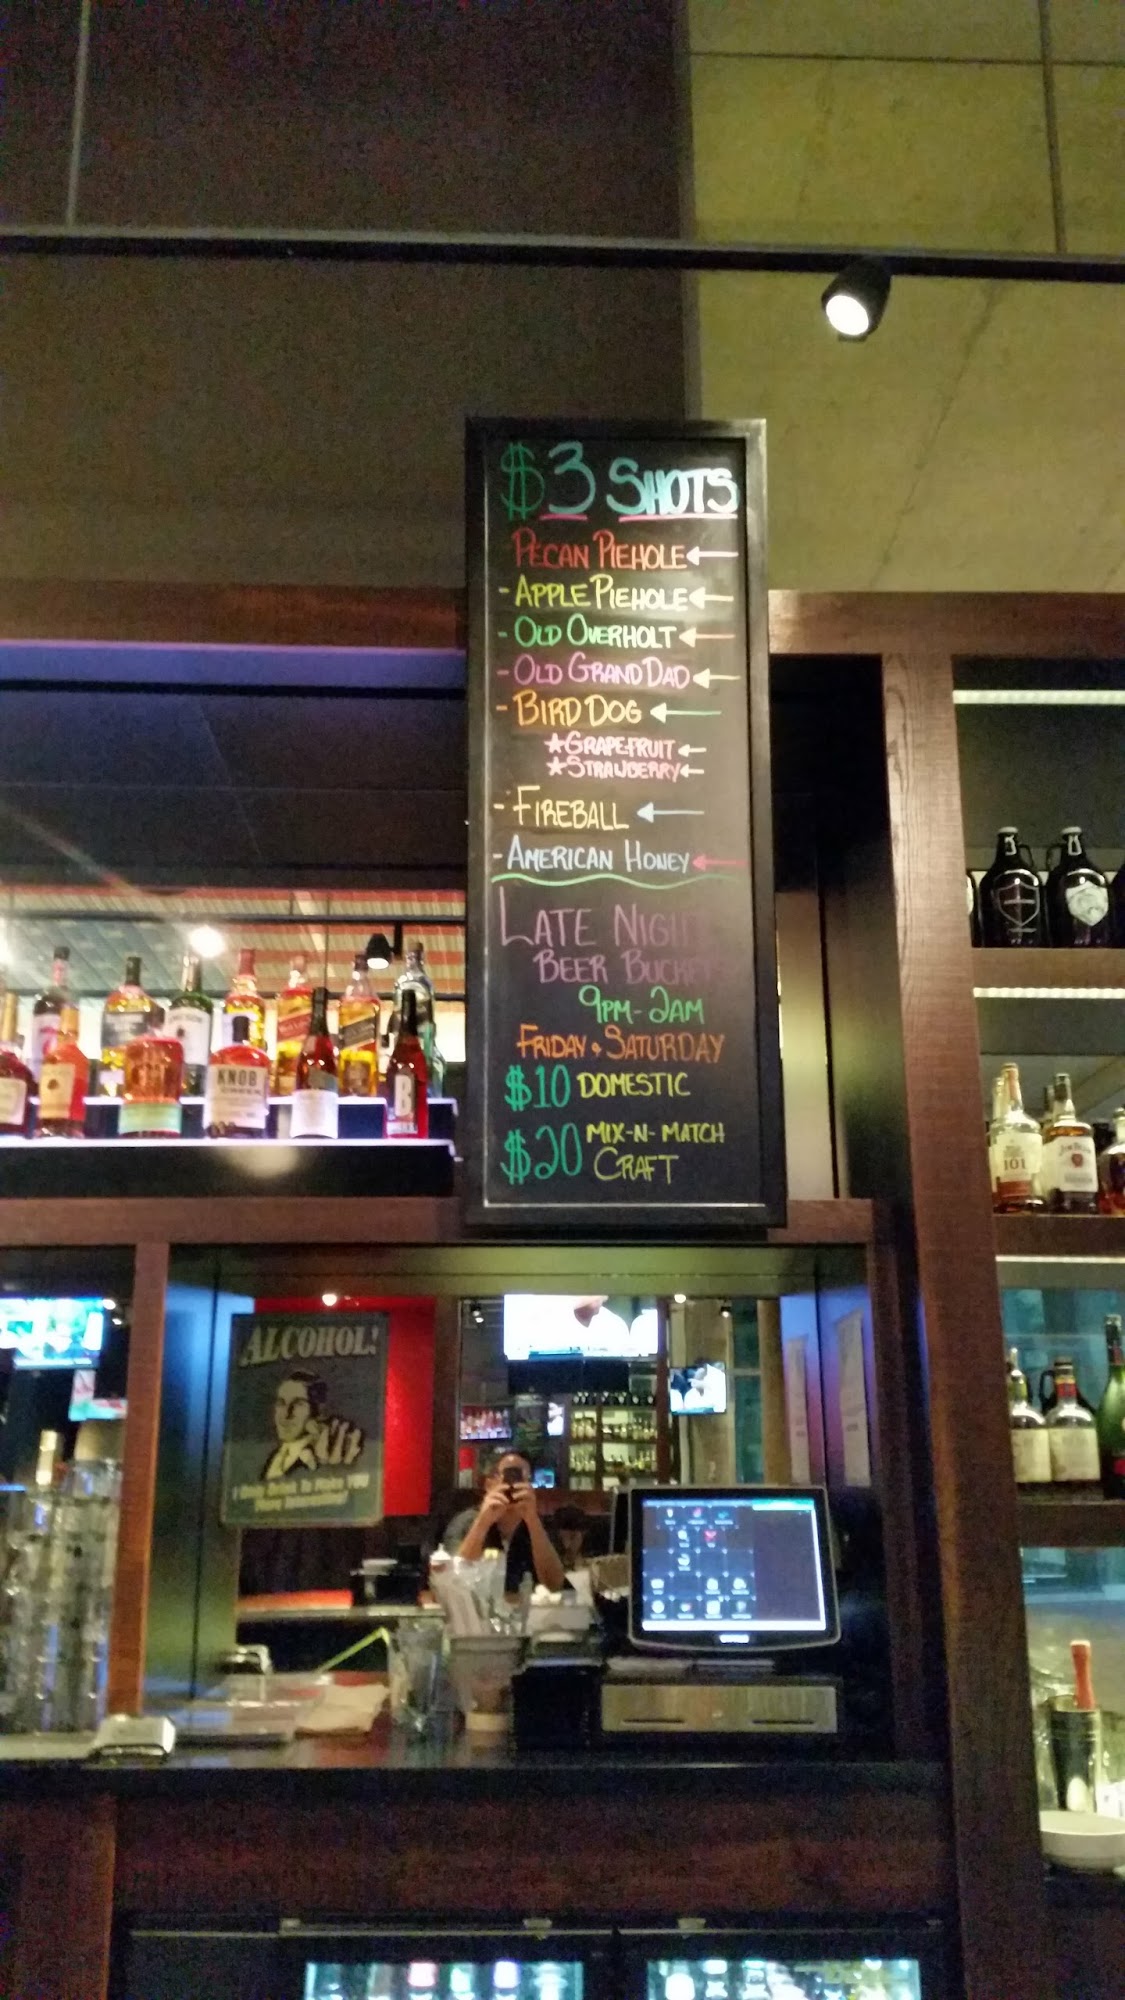 $3 SHOTS
PECAN PIEHOLE
- APPLE PIEHOLE
- OLD OVERHOLT
- OLD GRAND DAD
- BIRD DOG
★GRAPEFRUIT
★STRAWBERRY
- FIREBALL
- AMERICAN HONEY
LATE NIGHT
BEER BUCKETS
9PM-2AM
FRIDAY & SATURDAY
$10 DOMESTIC
$20 MIX-N-MATCH
CRAFT
KNOB
CREEK
101
JIM BEAM
ALCOHOL!
I Only Drink To Make YOU
More Interesting!